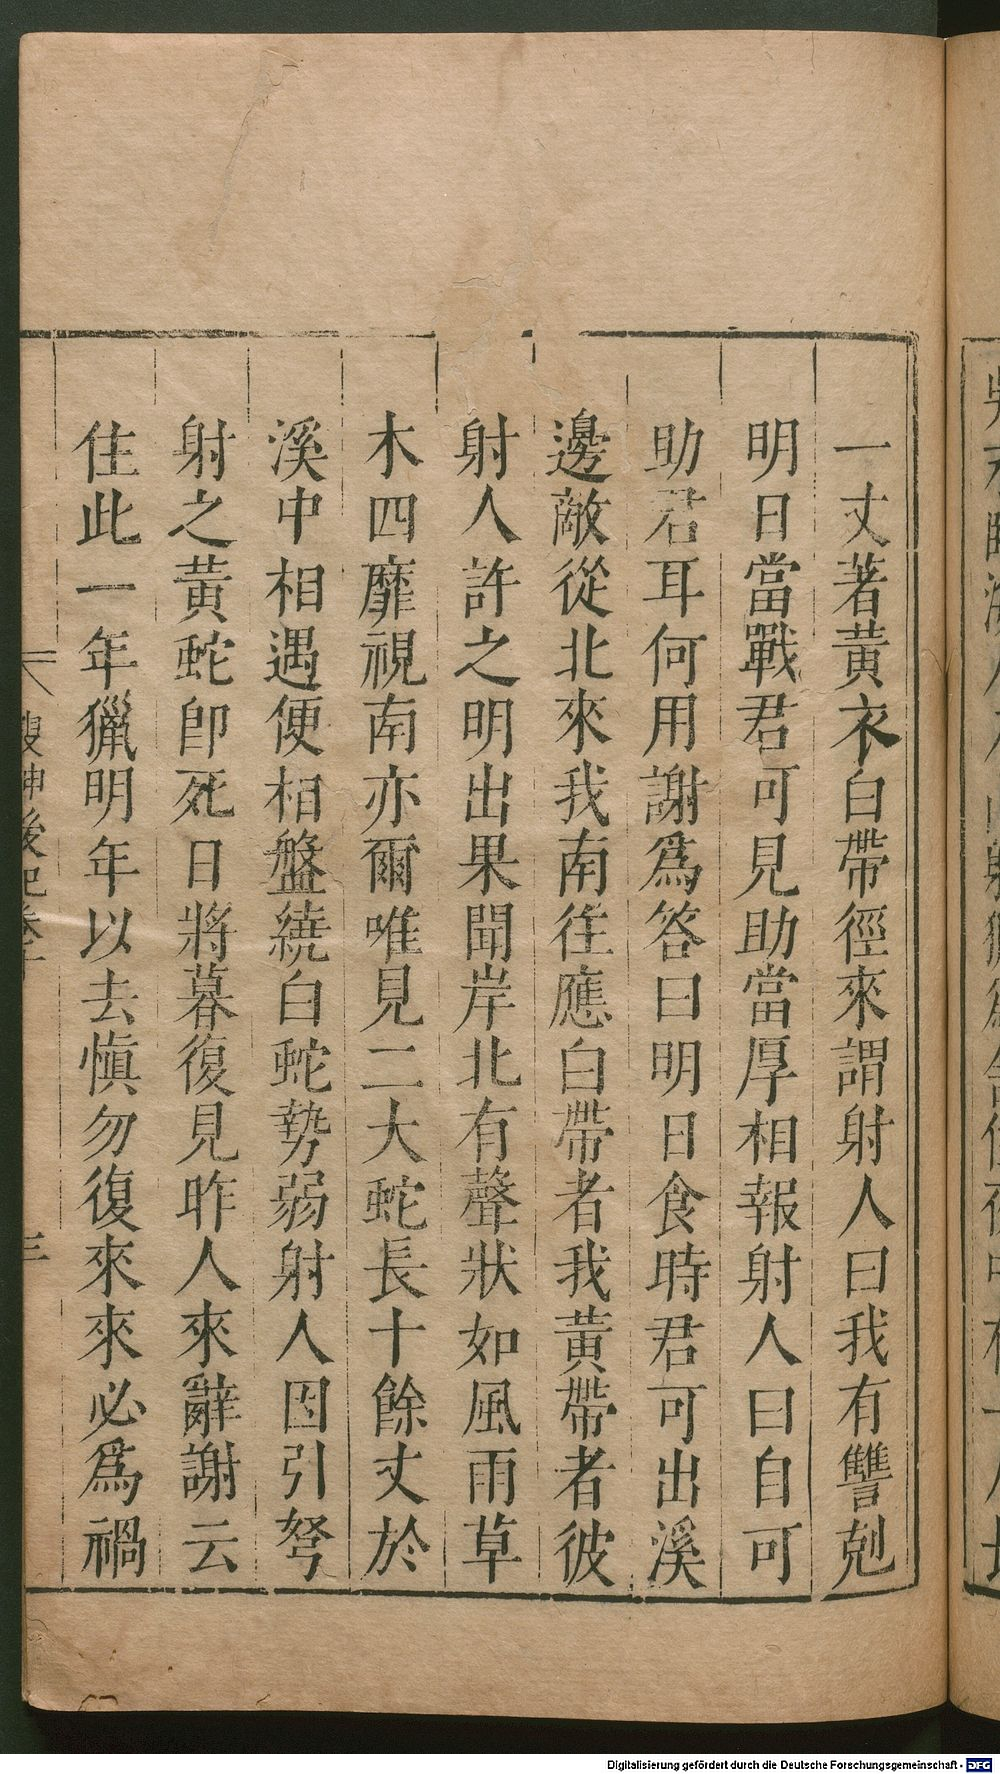 一丈著黃衣白帶徑來謂射人曰我有讐剋
明日當戰君可見助當厚相報射人曰自可
助君耳何用謝爲答曰明日食時君可出溪
邊敵從北來我南往應白帶者我黃帶者彼
射人許之明出果聞岸北有聲狀如風雨草
木四靡視南亦爾唯見二大蛇長十餘丈於
溪中相遇便相盤繞白蛇勢弱射人因引弩
射之黃蛇即死日將暮復見昨人來辭謝云
住此一年獵明年以去慎勿復來來必爲禍
搜神後記卷十
三
Digitalisierung gefördert durch die Deutsche Forschungsgemeinschaft - DFG